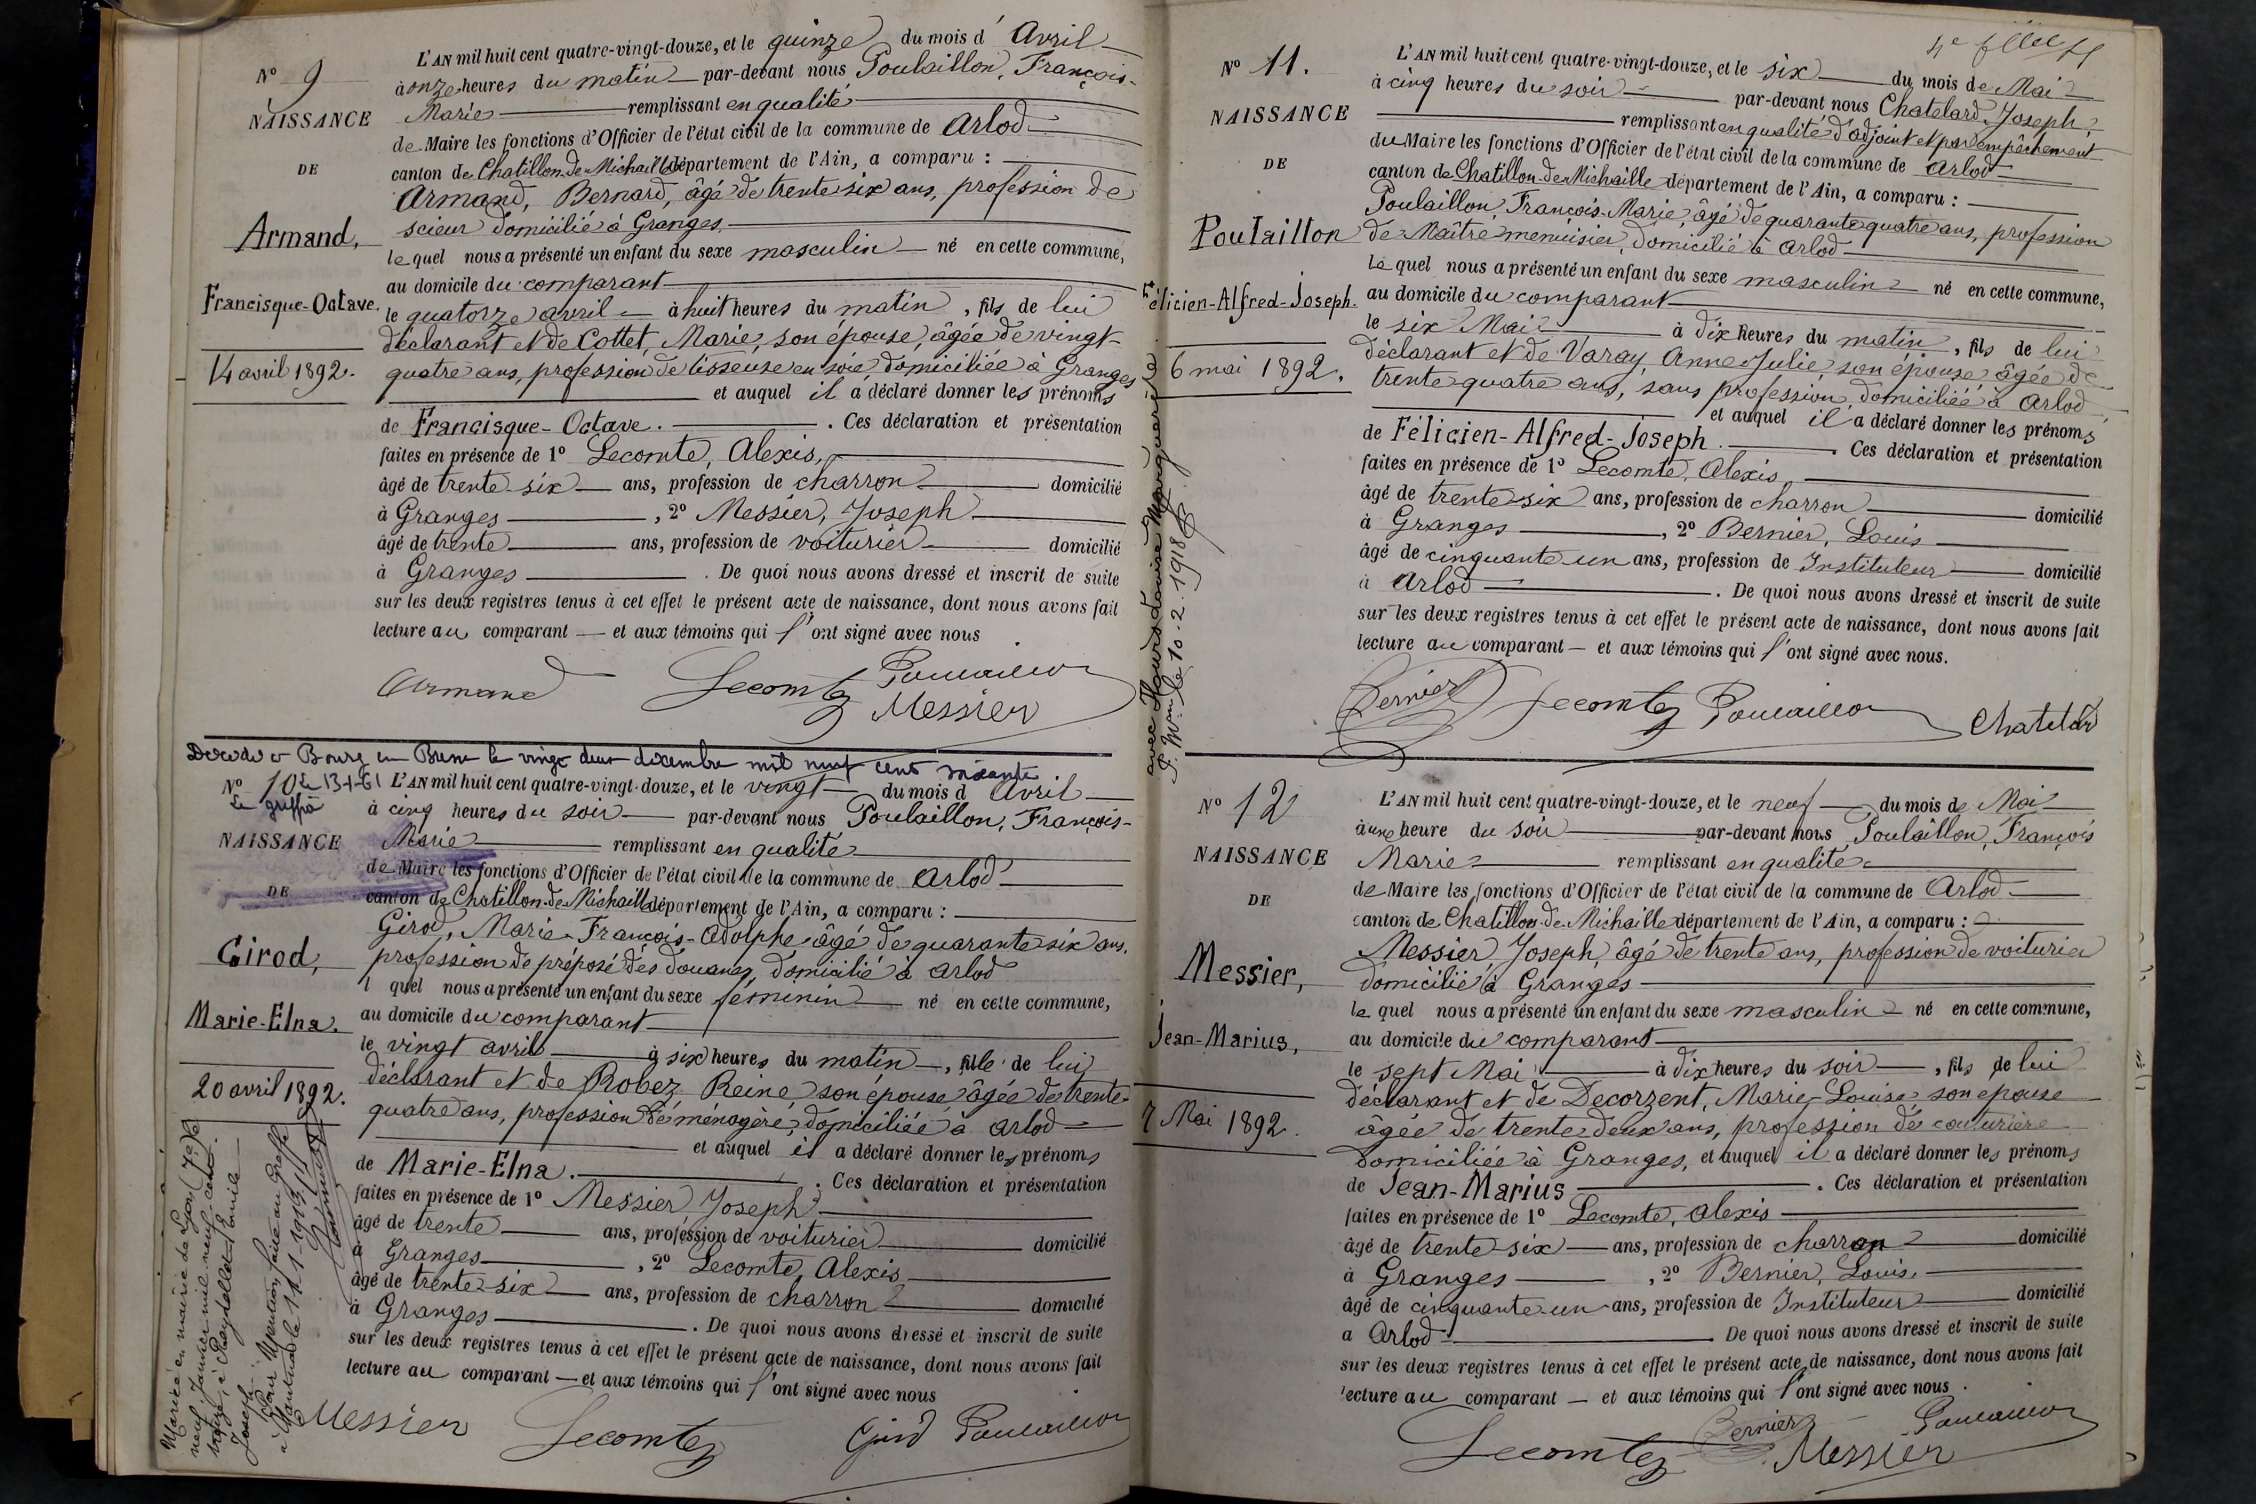 N° 9
NAISSANCE
DE
Armand,
Francisque-Octave.
14 avril 1892.
L'AN mil huit cent quatre-vingt-douze, et le quinze du mois d' Avril
à onze heures du matin par-devant nous Poulaillon, François-
Marie remplissant en qualité
de Maire les fonctions d'Officier de l'état civil de la commune de Arlod
canton de Chatillon-de-Michaille département de l'Ain, a comparu :
Armand, Bernard, âgé de trente six ans, profession de
scieur domicilié à Granges
lequel nous a présenté un enfant du sexe masculin né en cette commune,
au domicile du comparant
le quatorze avril à huit heures du matin, fils de lui
déclarant et de Cottet, Marie, son épouse, âgée de vingt-
quatre ans, profession de tisseuse en soie domiciliée à Granges
et auquel il a déclaré donner les prénoms
de Francisque-Octave. . Ces déclaration et présentation
faites en présence de 1° Lecomte, Alexis,
âgé de trente-six ans, profession de charron domicilié
à Granges , 2° Messier, Joseph
âgé de trente ans, profession de voiturier domicilié
à Granges . De quoi nous avons dressé et inscrit de suite
sur les deux registres tenus à cet effet le présent acte de naissance, dont nous avons fait
lecture au comparant — et aux témoins qui l'ont signé avec nous
Armand Lecomte Poulaillon
Messier
Décédée à Bourg en Bresse le vingt deux décembre mil neuf cent soixante
Le 13-1-61
Le greffier
N° 10
NAISSANCE
DE
Girod,
Marie-Elna.
20 avril 1892.
L'AN mil huit cent quatre-vingt-douze, et le vingt du mois d' Avril
à cinq heures du soir par-devant nous Poulaillon, François-
Marie remplissant en qualité
de Maire les fonctions d'Officier de l'état civil de la commune de Arlod
canton de Chatillon-de-Michaille département de l'Ain, a comparu :
Girod, Marie-François-Adolphe âgé de quarante six ans,
profession de préposé des douanes, domicilié à Arlod
l quel nous a présenté un enfant du sexe féminin né en cette commune,
au domicile du comparant
le vingt avril à six heures du matin, fille de lui
déclarant et de Robez Reine son épouse âgée de trente-
quatre ans, profession de ménagère, domiciliée à Arlod
et auquel il a déclaré donner les prénoms
de Marie-Elna. . Ces déclaration et présentation
faites en présence de 1° Messier Joseph
âgé de trente ans, profession de voiturier domicilié
à Granges , 2° Lecomte, Alexis
âgé de trente six ans, profession de charron domicilié
à Granges . De quoi nous avons dressé et inscrit de suite
sur les deux registres tenus à cet effet le présent acte de naissance, dont nous avons fait
lecture au comparant — et aux témoins qui l'ont signé avec nous
Messier Lecomte Girod Poulaillon
Mariée en mairie de Lyon (7e) le
neuf Janvier mil neuf cent
treize, à Emile
Joseph.
Pour Mention faite au Greffe
à Nantua le 11-1-1913
N° 11.
NAISSANCE
DE
Poulaillon
Félicien-Alfred-Joseph.
6 mai 1892.
avec Louise Marguerite
le 10.2.1918
L'AN mil huit cent quatre-vingt-douze, et le six du mois de Mai
à cinq heures du soir par-devant nous Chatelard Joseph,
remplissant en qualité d'adjoint et par empêchement
du Maire les fonctions d'Officier de l'état civil de la commune de Arlod
canton de Chatillon-de-Michaille département de l'Ain, a comparu :
Poulaillon, François-Marie, âgé de quarante quatre ans, profession
de Maître menuisier, domicilié à Arlod
lequel nous a présenté un enfant du sexe masculin né en cette commune,
au domicile du comparant
le six Mai à dix heures du matin, fils de lui
déclarant et de Varay, Anne-Julie, son épouse âgée de
trente quatre ans, sans profession, domiciliée à Arlod
et auquel il a déclaré donner les prénoms
de Félicien-Alfred-Joseph. . Ces déclaration et présentation
faites en présence de 1° Lecomte, Alexis
âgé de trente six ans, profession de charron domicilié
à Granges , 2° Bernier, Louis
âgé de cinquante un ans, profession de Instituteur domicilié
à Arlod . De quoi nous avons dressé et inscrit de suite
sur les deux registres tenus à cet effet le présent acte de naissance, dont nous avons fait
lecture au comparant — et aux témoins qui l'ont signé avec nous.
Bernier Lecomte Poulaillon Chatelard
N° 12
NAISSANCE
DE
Messier,
Jean-Marius,
7 Mai 1892.
L'AN mil huit cent quatre-vingt-douze, et le neuf du mois de Mai
à une heure du soir par-devant nous Poulaillon, François
Marie remplissant en qualité
de Maire les fonctions d'Officier de l'état civil de la commune de Arlod
canton de Chatillon-de-Michaille département de l'Ain, a comparu :
Messier, Joseph, âgé de trente ans, profession de voiturier
domicilié à Granges
lequel nous a présenté un enfant du sexe masculin né en cette commune,
au domicile du comparant
le sept Mai à dix heures du soir, fils de lui
déclarant et de Decorzent, Marie-Louise, son épouse
âgée de trente deux ans, profession de couturière
domiciliée à Granges, et auquel il a déclaré donner les prénoms
de Jean-Marius . Ces déclaration et présentation
faites en présence de 1° Lecomte, Alexis
âgé de trente six ans, profession de charron domicilié
à Granges , 2° Bernier, Louis,
âgé de cinquante un ans, profession de Instituteur domicilié
a Arlod . De quoi nous avons dressé et inscrit de suite
sur les deux registres tenus à cet effet le présent acte de naissance, dont nous avons fait
lecture au comparant — et aux témoins qui l'ont signé avec nous.
Lecomte Bernier Messier Poulaillon